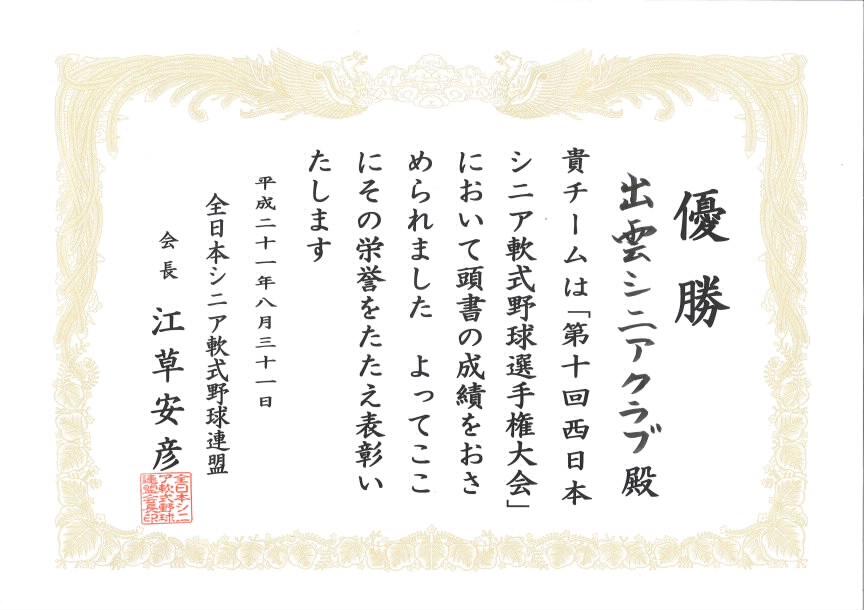 優勝
出雲シニアクラブ殿
貴チームは「第十回西日本
シニア軟式野球選手権大会」
において頭書の成績をおさ
められました よってここ
にその栄誉をたたえ表彰い
たします
平成二十一年八月三十一日
全日本シニア軟式野球連盟
会長 江草安彦
全日本シニ
ア軟式野球
連盟会長印